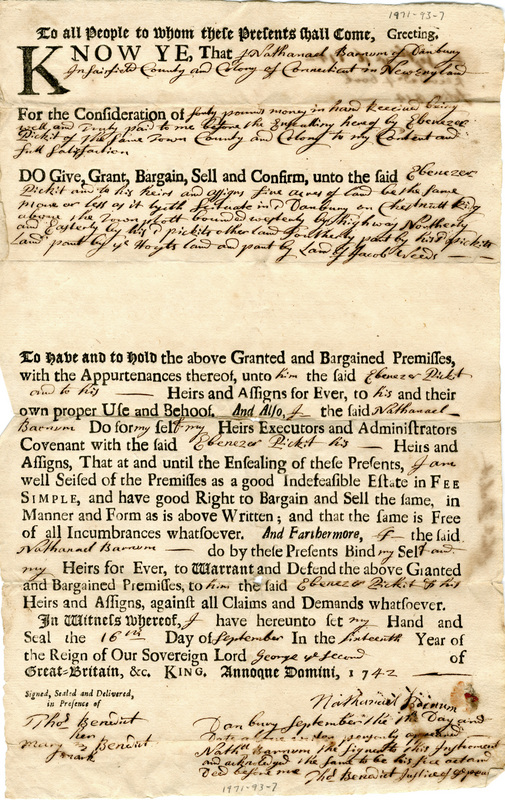 1971-93-7
To all People to whom these Presents shall Come, Greeting.
KNOW YE, That I Nathanael Barnum of Danbury
In fairfield County and Colony of Connecticut in New England
For the Consideration of forty pounds money in hand Received being
well and truly paid to me before the Ensealing hereof by Ebenezer
Pickit of the same Town County and Colony to my Content and
full Satisfaction
DO Give, Grant, Bargain, Sell and Confirm, unto the said Ebenezer
Pickit and to his heirs and assigns five acres of land be the same
more or less as it lyeth Situate in Danbury on Chestnutt
above the Town plott bounded westerly by highway Northerly
and Easterly by his pickits other land Southerly part by his pickits
Land part by ye Hoyts land and part by Land of Jacob Weeds
To Have and to Hold the above Granted and Bargained Premisses,
with the Appurtenances thereof, unto him the said Ebenezer Pickit
and to his Heirs and Assigns for Ever, to his and their
own proper Use and Behoof. And Also, I the said Nathanael
Barnum Do for my self my Heirs Executors and Administrators
Covenant with the said Ebenezer Pickit his Heirs and
Assigns, That at and until the Ensealing of these Presents, I am
well Seised of the Premisses as a good Indefeasible Estate in FEE
SIMPLE, and have good Right to Bargain and Sell the same, in
Manner and Form as is above Written; and that the same is Free
of all Incumbrances whatsoever. And Farthermore, I the said
Nathanael Barnum do by these Presents Bind my Self and
my Heirs for Ever, to Warrant and Defend the above Granted
and Bargained Premisses, to him the said Ebenezer Pickit & his
Heirs and Assigns, against all Claims and Demands whatsoever.
In Witness whereof, I have hereunto set my Hand and
Seal the 16th Day of September In the sixteenth Year of
the Reign of Our Sovereign Lord George ye Second of
Great-Britain, &c. KING, Annoque Domini, 1742
Signed, Sealed and Delivered,
in Presence of
Thos Benedict
her
Mary Benedict
mark
Nathanael Barnum
Danbury September the Day and
Date above personly appeared
Nathll Barnum the Signer to this Instrument
and acknowledged the same to be his free act and
Deed before me Thos Benedict Justice of peace
1971-93-7